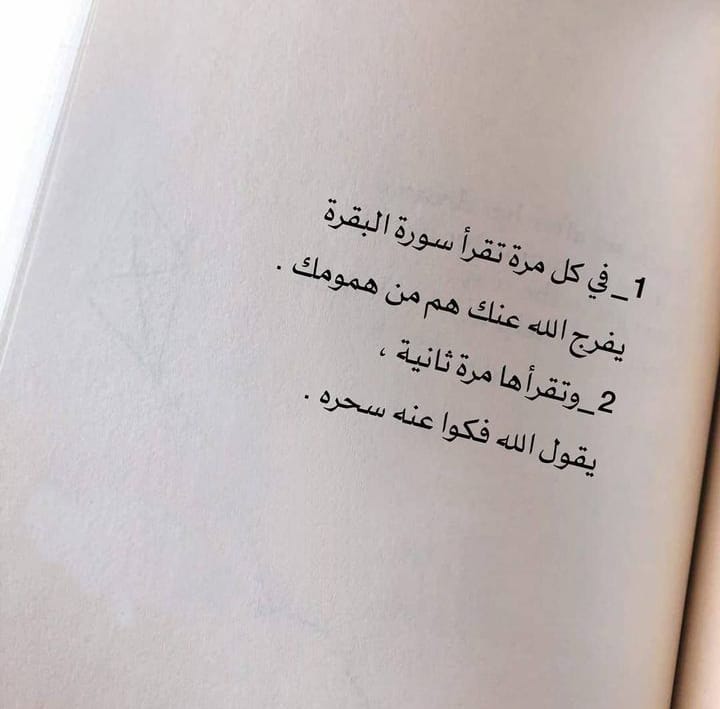 1_في كل مرة تقرأ سورة البقرة
يفرج الله عنك هم من همومك .
2_وتقرأها مرة ثانية ،
يقول الله فكوا عنه سحره .